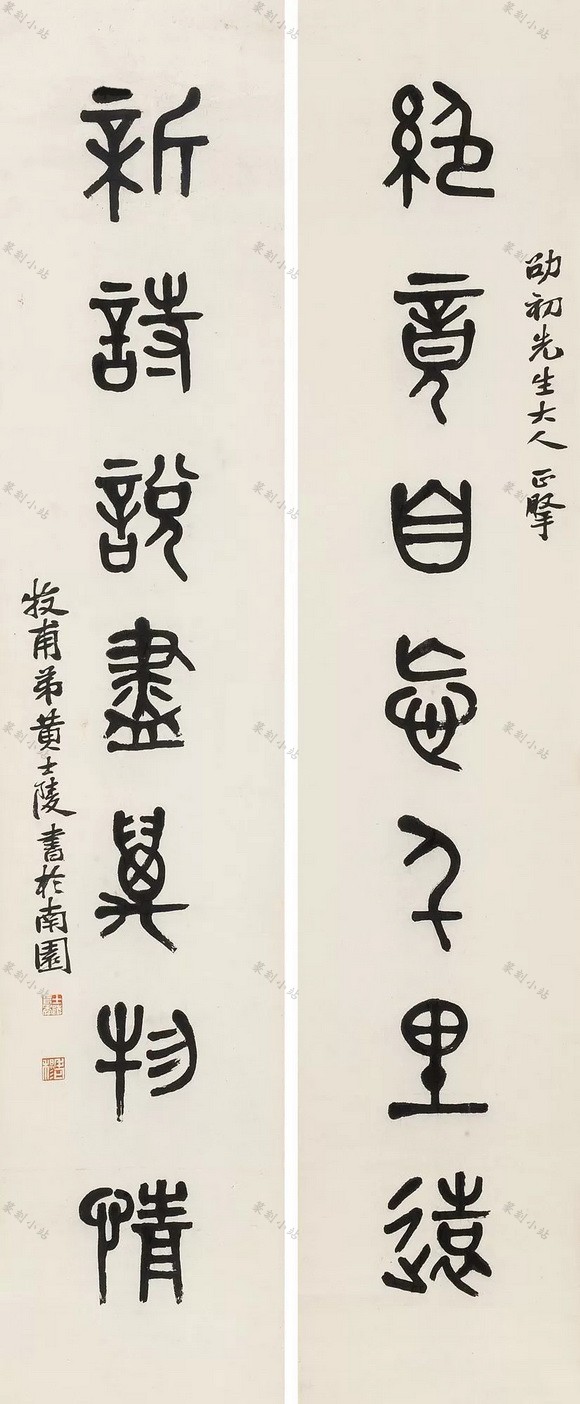 絶竟自忘千里遠
劭初先生大人正掔
新詩說盡萬物情
牧甫弟黄士陵書於南園
篆刻小站